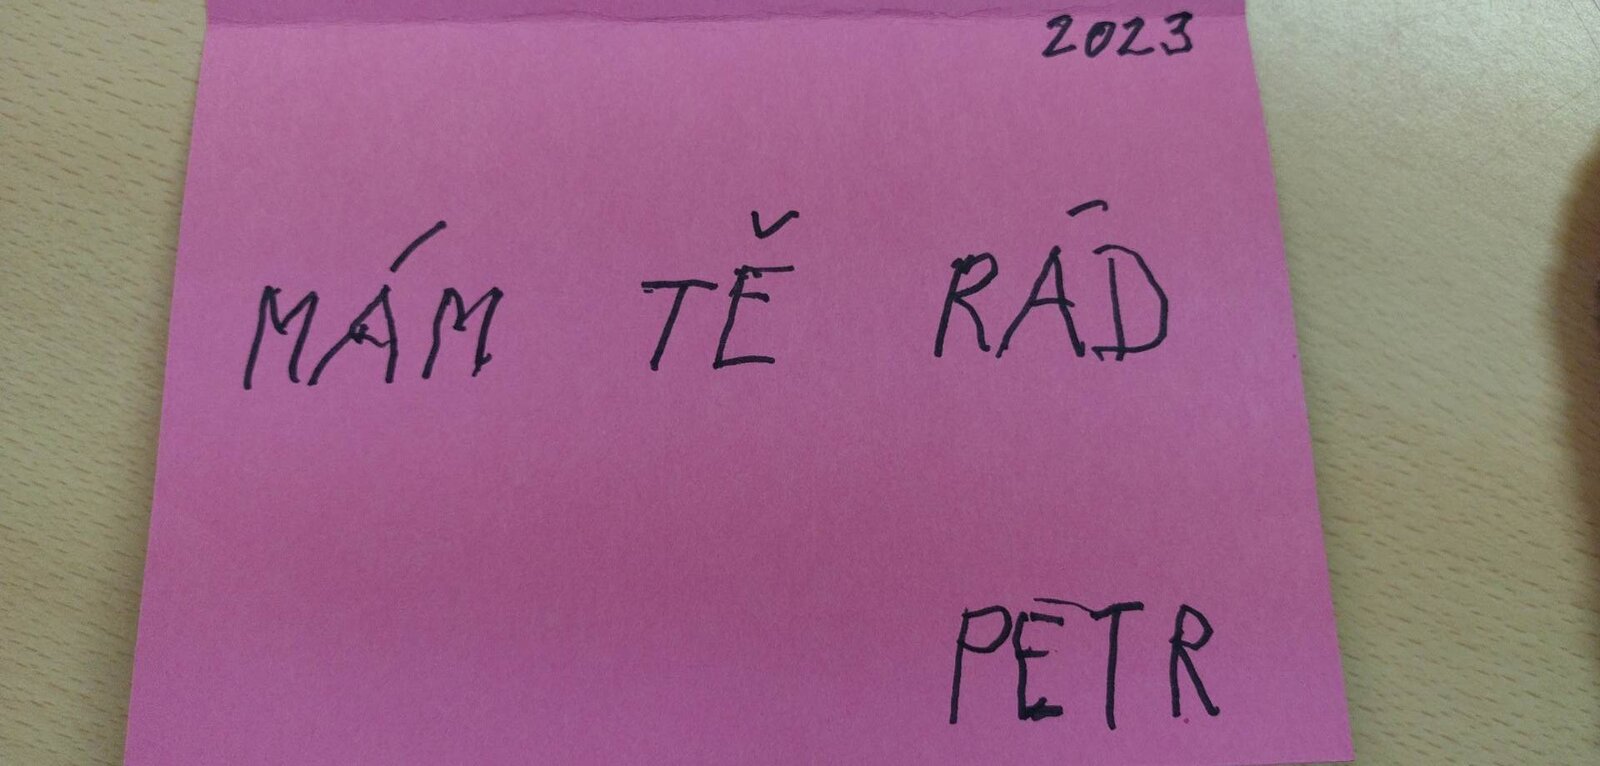 2023
MÁM TĚ RÁD
PETR